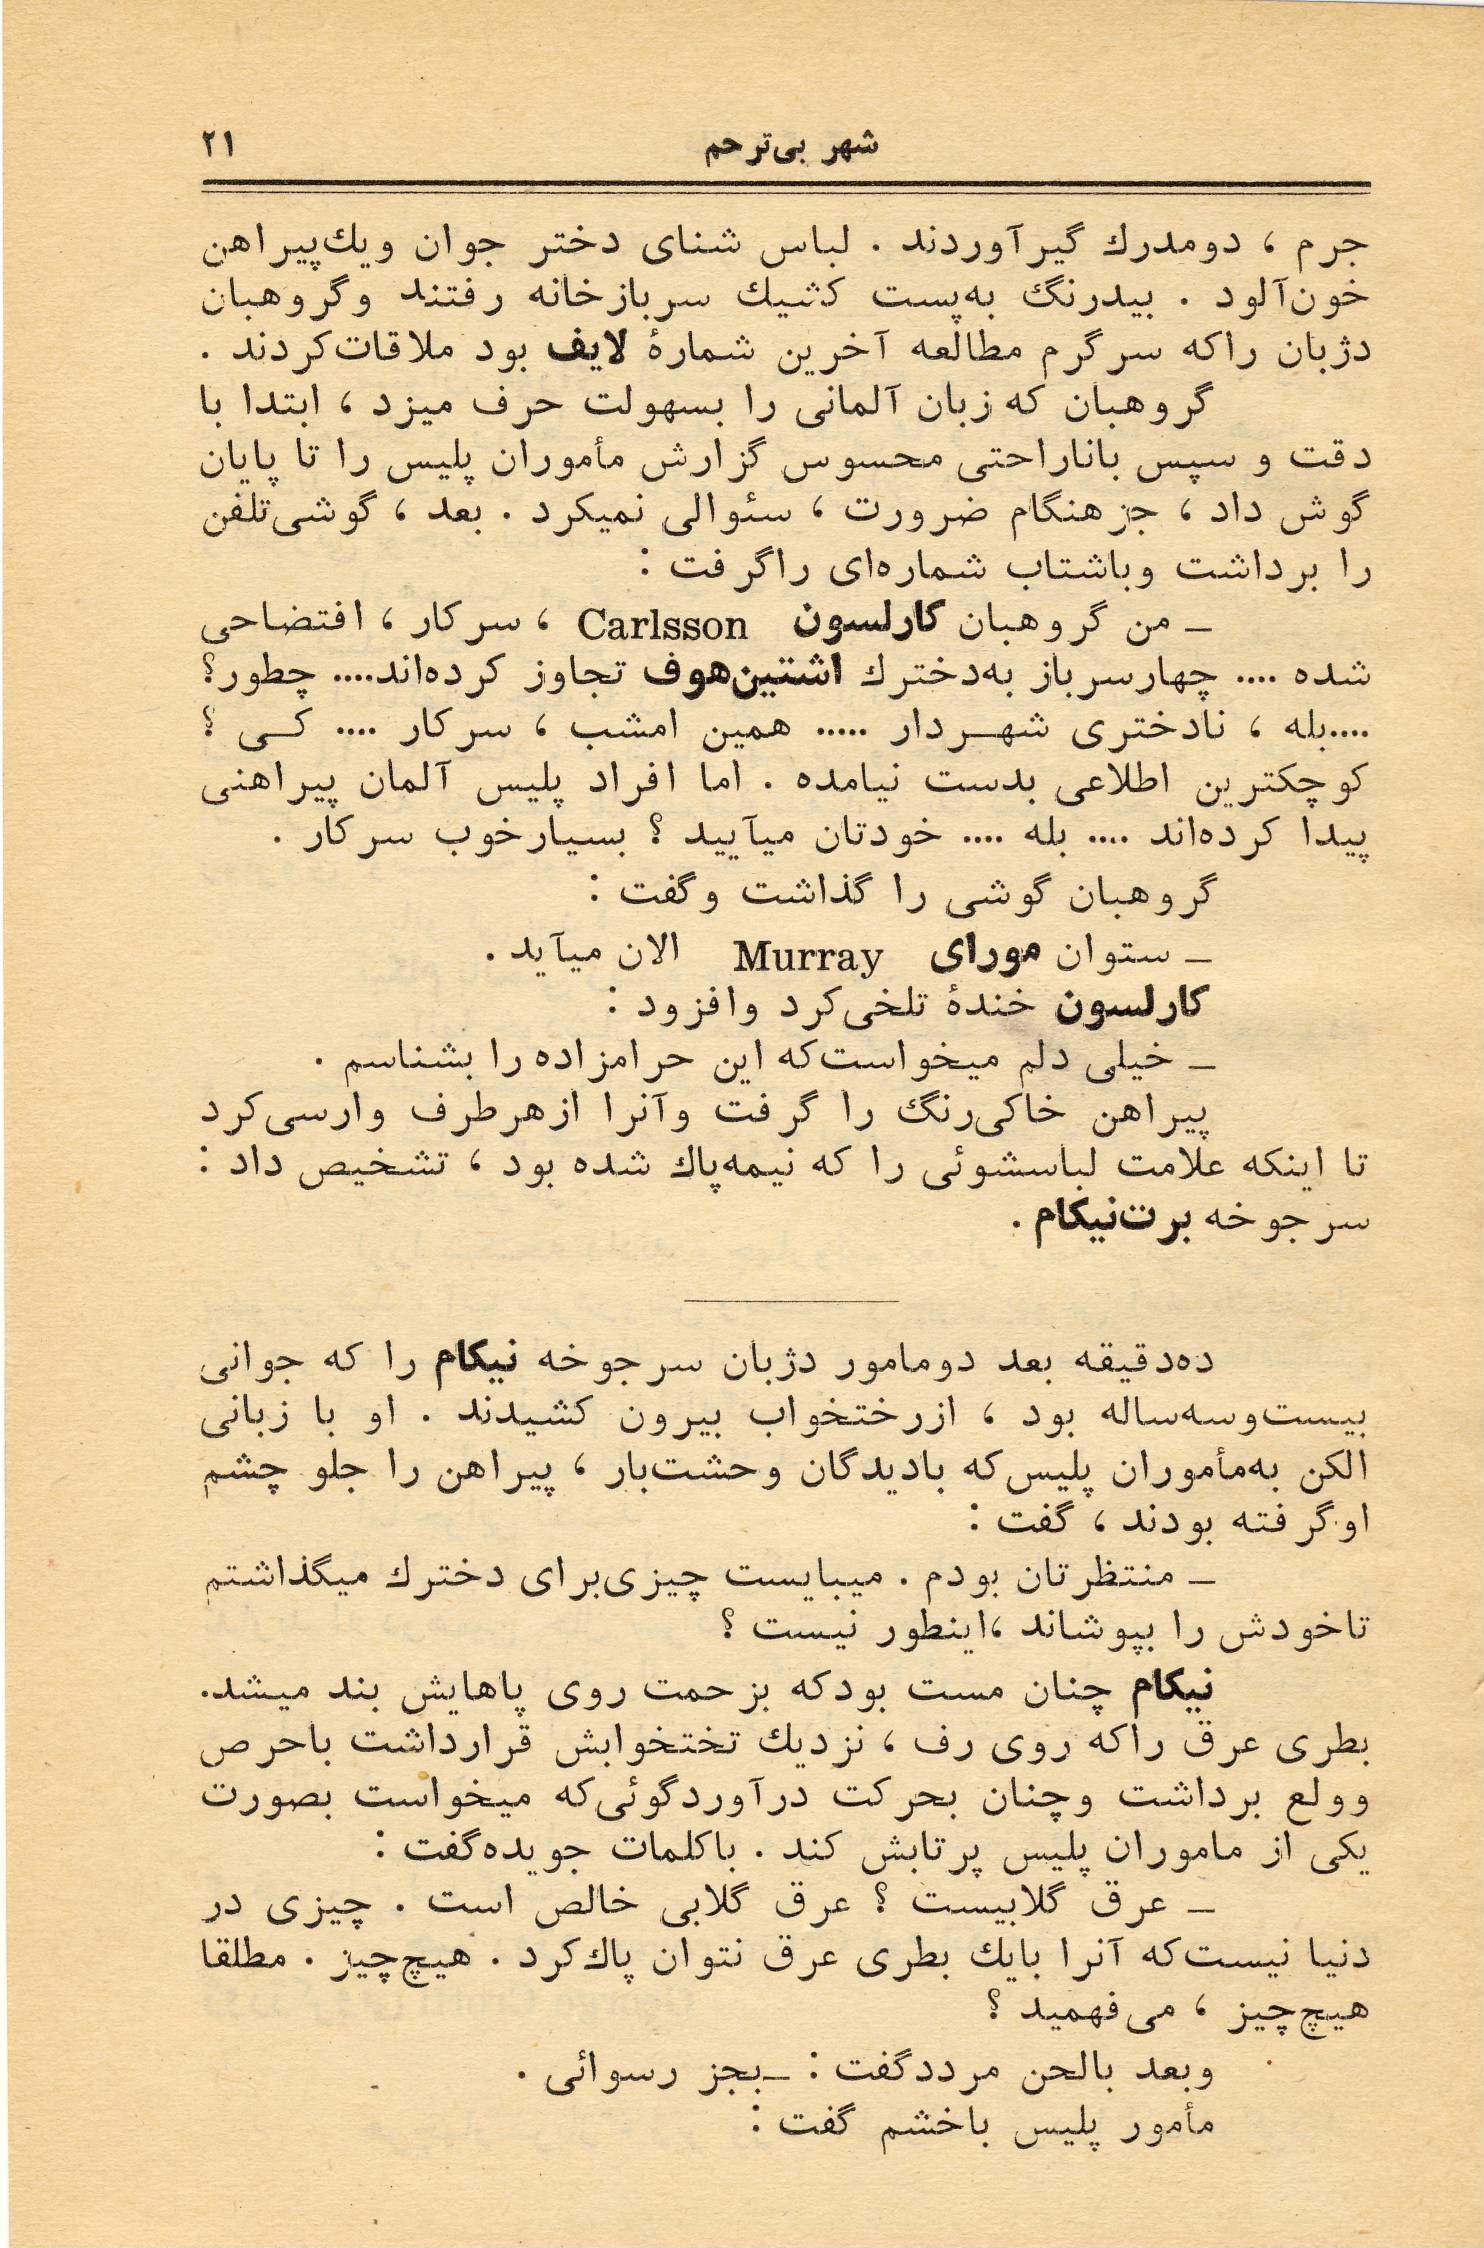 شهر بی‌ترحم ۲۱
جرم ، دومدرك گیرآوردند . لباس شنای دختر جوان ویك‌پیراهن
خون‌آلود . بیدرنگ به‌پست کشیك سربازخانه رفتند وگروهبان
دژبان راکه سرگرم مطالعه آخرین شمارهٔ لایف بود ملاقات‌کردند .
گروهبان که زبان آلمانی را بسهولت حرف میزد ، ابتدا با
دقت و سپس باناراحتی محسوس گزارش مأموران پلیس را تا پایان
گوش داد ، جزهنگام ضرورت ، سئوالی نمیکرد . بعد ، گوشی‌تلفن
را برداشت وباشتاب شماره‌ای راگرفت :
ـ من گروهبان کارلسون Carlsson ، سرکار ، افتضاحی
شده .... چهارسرباز به‌دخترك اشتین‌هوف تجاوز کرده‌اند.... چطور؟
....بله ، نادختری شهردار ..... همین امشب ، سرکار .... کی ؟
کوچکترین اطلاعی بدست نیامده . اما افراد پلیس آلمان پیراهنی
پیدا کرده‌اند .... بله .... خودتان میآیید ؟ بسیارخوب سرکار .
گروهبان گوشی را گذاشت وگفت :
ـ ستوان مورای Murray الان میآید .
کارلسون خندهٔ تلخی‌کرد وافزود :
ـ خیلی دلم میخواست‌که این حرامزاده را بشناسم .
پیراهن خاکی‌رنگ را گرفت وآنرا ازهرطرف وارسی‌کرد
تا اینکه علامت لباسشوئی را که نیمه‌پاك شده بود ، تشخیص داد :
سرجوخه برت‌نیکام .
ده‌دقیقه بعد دومامور دژبان سرجوخه نیکام را که جوانی
بیست‌وسه‌ساله بود ، ازرختخواب بیرون کشیدند . او با زبانی
الکن به‌مأموران پلیس‌که بادیدگان وحشت‌بار ، پیراهن را جلو چشم
اوگرفته بودند ، گفت :
ـ منتظرتان بودم . میبایست چیزی‌برای دخترك میگذاشتم
تاخودش را بپوشاند ،اینطور نیست ؟
نیکام چنان مست بودکه بزحمت روی پاهایش بند میشد.
بطری عرق راکه روی رف ، نزدیك تختخوابش قرارداشت باحرص
وولع برداشت وچنان بحرکت درآوردگوئی‌که میخواست بصورت
یکی از ماموران پلیس پرتابش کند . باکلمات جویده‌گفت :
ـ عرق گلابیست ؟ عرق گلابی خالص است . چیزی در
دنیا نیست‌که آنرا بایك بطری عرق نتوان پاك‌کرد . هیچ‌چیز . مطلقا
هیچ‌چیز ، می‌فهمید ؟
وبعد بالحن مرددگفت : ـبجز رسوائی .
مأمور پلیس باخشم گفت :